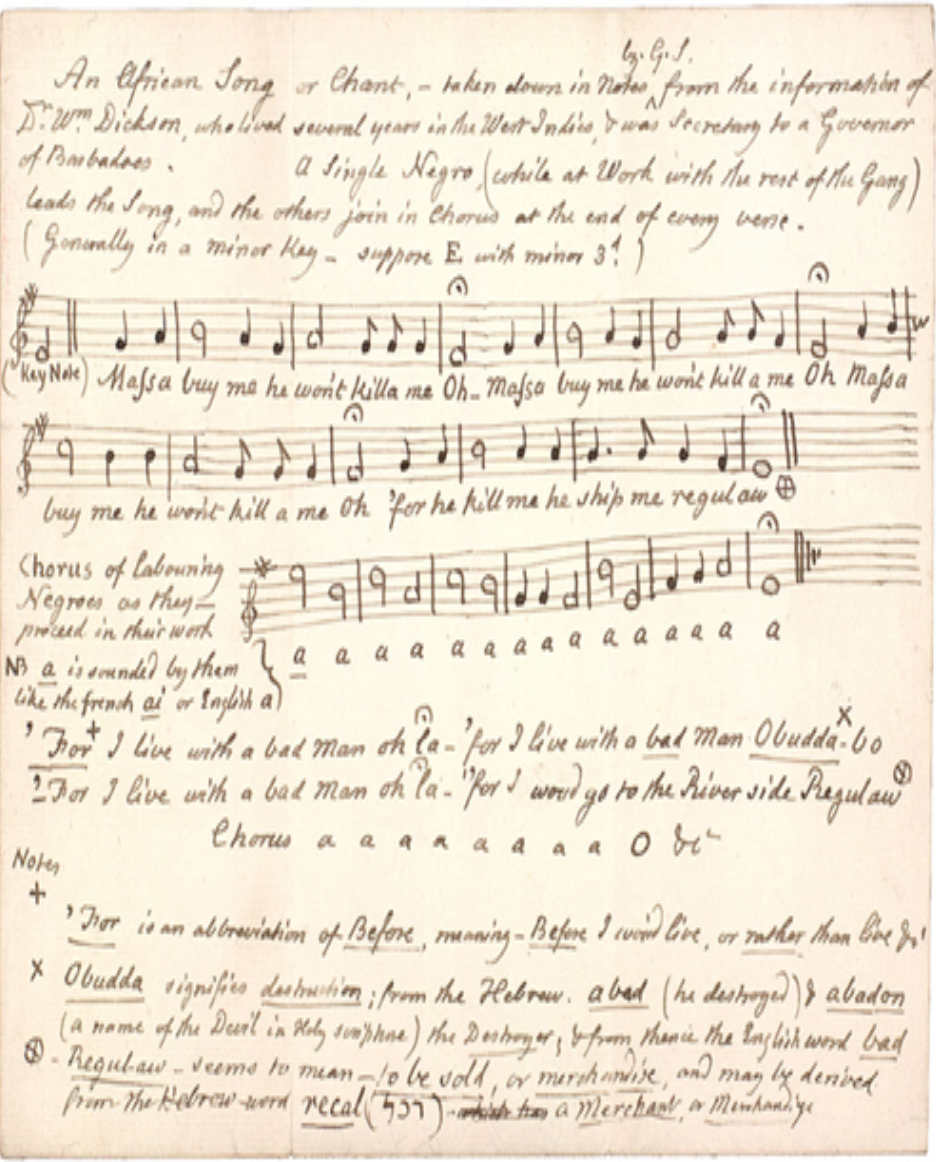 by G.S.
An African Song or Chant, – taken down in Notes ^ from the information of
Dr. Wm. Dickson, who lived several years in the West Indies, & was Secretary to a Governor
of Barbadoes. A Single Negro, (while at Work with the rest of the Gang)
leads the Song, and the others join in Chorus at the end of every verse.
(Generally in a minor Key – suppose E with minor 3d.)
(Key Note) Maſsa buy me he won't killa me Oh – Maſsa buy me he won't kill a me Oh Maſsa
buy me he won't kill a me Oh 'for he kill me he ship me regulaw ⊕
Chorus of labouring
Negroes as they –
proceed in their work
a a a a a a a a a a a a a
NB a is sounded by them
like the french ai or English a)
'For + I live with a bad man oh la – 'for I live with a bad Man Obudda-bo x
'For I live with a bad man oh la – 'for I woud go to the River side Regulaw ⊗
Chorus a a a a a a a a O &c
Notes
+
'For is an abbreviation of Before, meaning – Before I wou'd live, or rather than live &c
x Obudda signifies destruction; from the Hebrew. abad (he destroyed) & abadon
(a name of the Devil in Holy scripture) the Destroyer; & from thence the English word bad
⊗ - Regulaw – seems to mean – to be sold, or merchandise, and may be derived
from the Hebrew word recal (רכל) which has a Merchant, or Merchandize